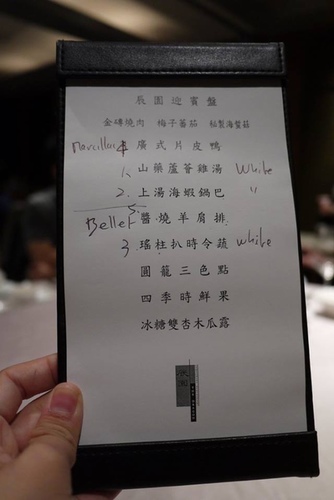 辰園迎賓盤
金磚燒肉 梅子蕃茄 秘製海蜇菇
廣式片皮鴨
1. 山藥蘆薈雞湯 White
2. 上湯海蝦鍋巴 〃
Bellet 醬燒羊肩排
3. 瑤柱扒時令蔬 white
圓籠三色點
四季時鮮果
冰糖雙杏木瓜露
辰園